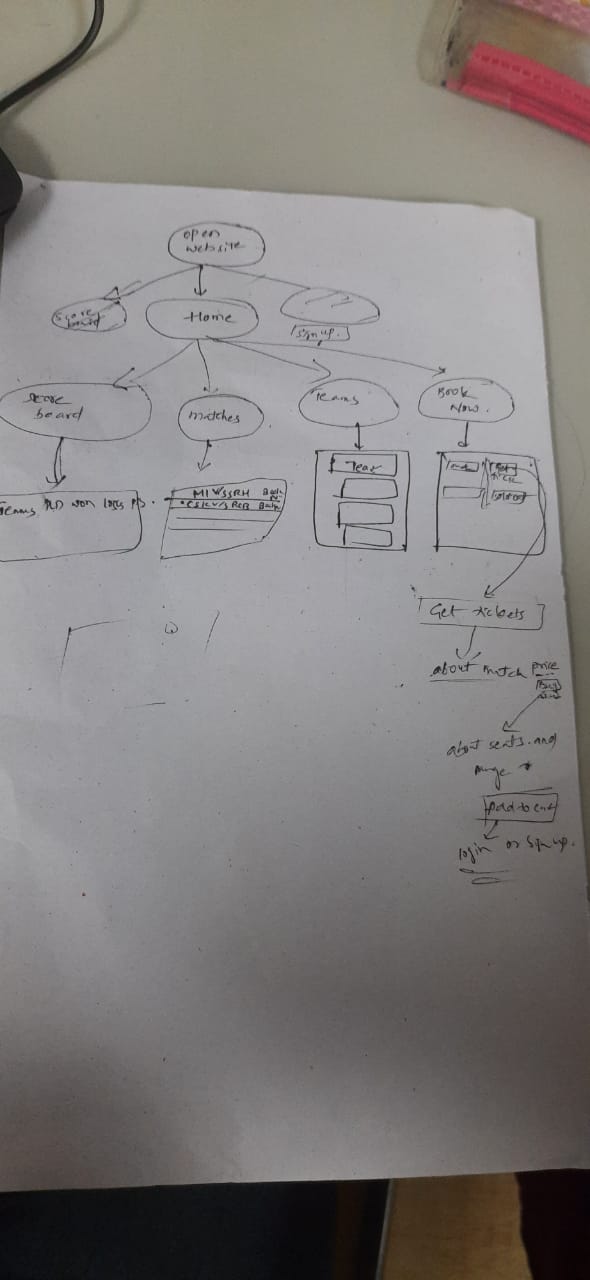 open
website
Score
board
Home
Sign up.
Score
board
matches
Teams
Book
Now.
Teams, PLD won loss pts.
MI VS SRH Book
CSK V/S RCB Book
Team
Get
Get tickets
about match price
Buy
about seats. and
range
Add to cart
login or Sign up.